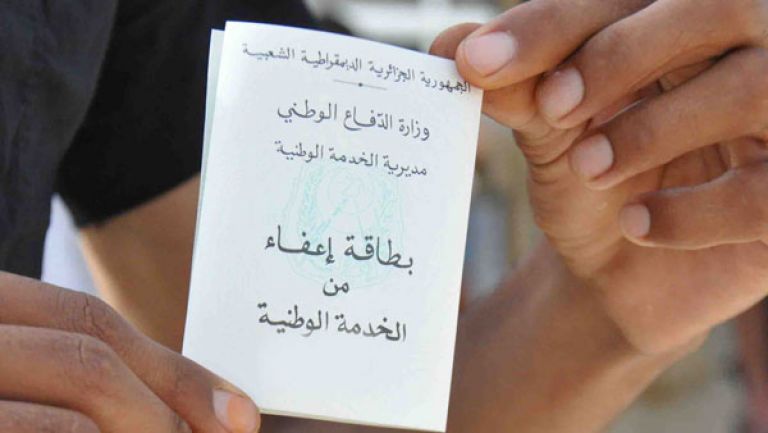 الجمهورية الجزائرية الديمقراطية الشعبية
وزارة الدّفاع الوطني
مديرية الخدمة الوطنية
بطاقة إعفاء
من
الخدمة الوطنية